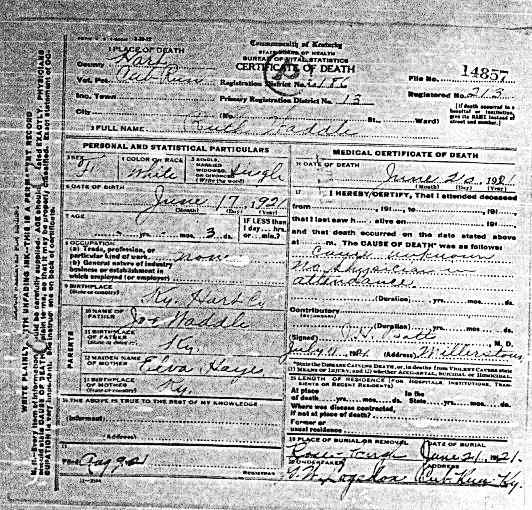 Commonwealth of Kentucky
STATE BOARD OF HEALTH
BUREAU OF VITAL STATISTICS
CERTIFICATE OF DEATH
1 PLACE OF DEATH
County Hart
Vot. Pct. Cub Run
Registration District No.
File No. 14857
Inc. Town
Primary Registration District No.
Registered No. 213
[If death occurred in a hospital or institution, give its NAME instead of street and number.]
City (No. St., Ward)
2 FULL NAME Ruth Waddle
PERSONAL AND STATISTICAL PARTICULARS
3 SEX F
4 COLOR OR RACE White
5 SINGLE, MARRIED, WIDOWED, OR DIVORCED (Write the word) Single
6 DATE OF BIRTH
June 17, 1921
(Month) (Day) (Year)
7 AGE
yrs. mos. 3 ds.
IF LESS than 1 day... hrs. or... min.?
8 OCCUPATION
(a) Trade, profession, or particular kind of work none
(b) General nature of industry business or establishment in which employed (or employer)
9 BIRTHPLACE (State or country) Ky. Hart Co
PARENTS
10 NAME OF FATHER Joe Waddle
11 BIRTHPLACE OF FATHER (State or country) Ky
12 MAIDEN NAME OF MOTHER Hayes
13 BIRTHPLACE OF MOTHER (State or country) Ky.
14 THE ABOVE IS TRUE TO THE BEST OF MY KNOWLEDGE
(Informant)
(Address)
15
Filed
REGISTRAR
MEDICAL CERTIFICATE OF DEATH
16 DATE OF DEATH
June 20, 1921
(Month) (Day) (Year)
17 I HEREBY CERTIFY, That I attended deceased
from 191 , to 191 ,
that I last saw h alive on 191 ,
and that death occurred on the date stated above
at m. The CAUSE OF DEATH* was as follows:
Cause unknown
No physician in
attendance
(Duration) yrs. mos. ds.
Contributory
(Duration) yrs. mos. ds.
(Signed) M. D.
(Address) Millerstown
*State the DISEASE CAUSING DEATH, or, in deaths from VIOLENT CAUSES state (1) MEANS OF INJURY; and (2) whether ACCIDENTAL, SUICIDAL or HOMICIDAL.
18 LENGTH OF RESIDENCE (FOR HOSPITALS, INSTITUTIONS, TRANSIENTS OR RECENT RESIDENTS)
At place of death yrs. mos. ds. In the State yrs. mos. ds.
Where was disease contracted, if not at place of death?
Former or usual residence
19 PLACE OF BURIAL OR REMOVAL
DATE OF BURIAL
June 21, 1921
20 UNDERTAKER
Logsdon
ADDRESS
Cub Run Ky.
WRITE PLAINLY, WITH UNFADING INK—THIS IS A PERMANENT RECORD